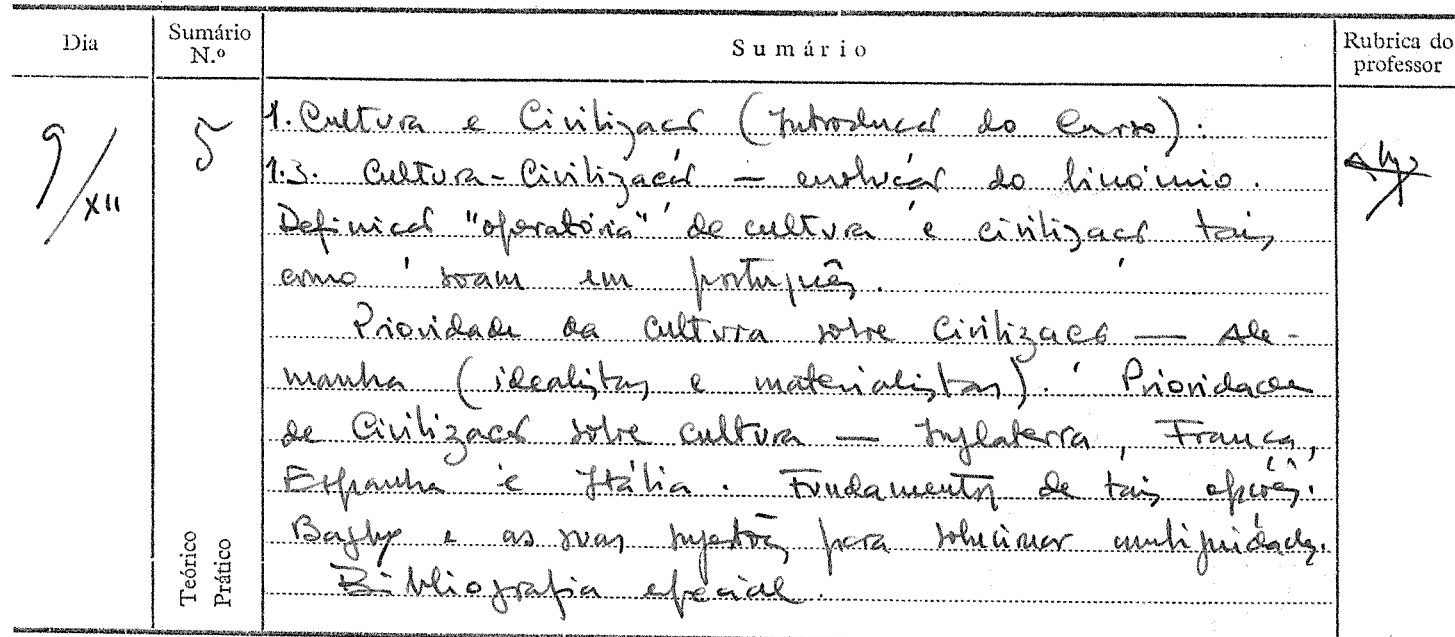 Dia
Sumário N.º
Sumário
Rubrica do professor
9/XII
5
1. Cultura e Civilização (Introdução do Curso).
1.3. Cultura-Civilização — evolução do binómio.
Definição "operatória" de cultura e civilização tais
como soam em português.
Prioridade da Cultura sobre Civilização — Ale-
manha (idealistas e materialistas). Prioridade
de Civilização sobre cultura — Inglaterra, França,
Espanha e Itália. Fundamentos de tais opções.
Bagby e as suas sugestões para solucionar ambiguidades.
Bibliografia especial.
Teórico
Prático